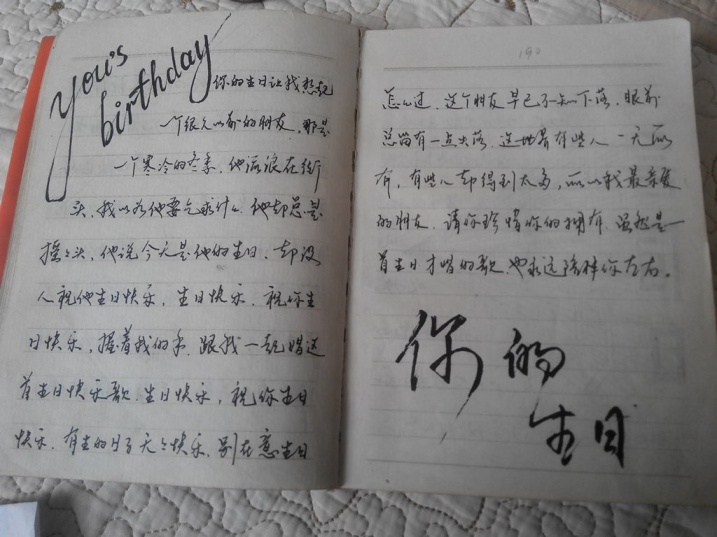 you's
birthday
你的生日让我想起
一个很久以前的朋友，那是
一个寒冷的冬季，他流浪在街
头，我以为他要乞求什么，他却总是
摇摇头，他说今天是他的生日，却没
人祝他生日快乐，生日快乐，祝你生
日快乐，握着我的手，跟我一起唱这
首生日快乐歌，生日快乐，祝你生日
快乐，有生的日子天天快乐，别在意生日
怎么过，这个朋友早已不知下落，眼前
总简有一点失落，这世界有些人一无所
有，有些人却得到太多，所以我最亲爱
的朋友，请你珍惜你的拥有，虽然是一
首生日才唱的歌，也永远陪伴你左右。
你的
生日